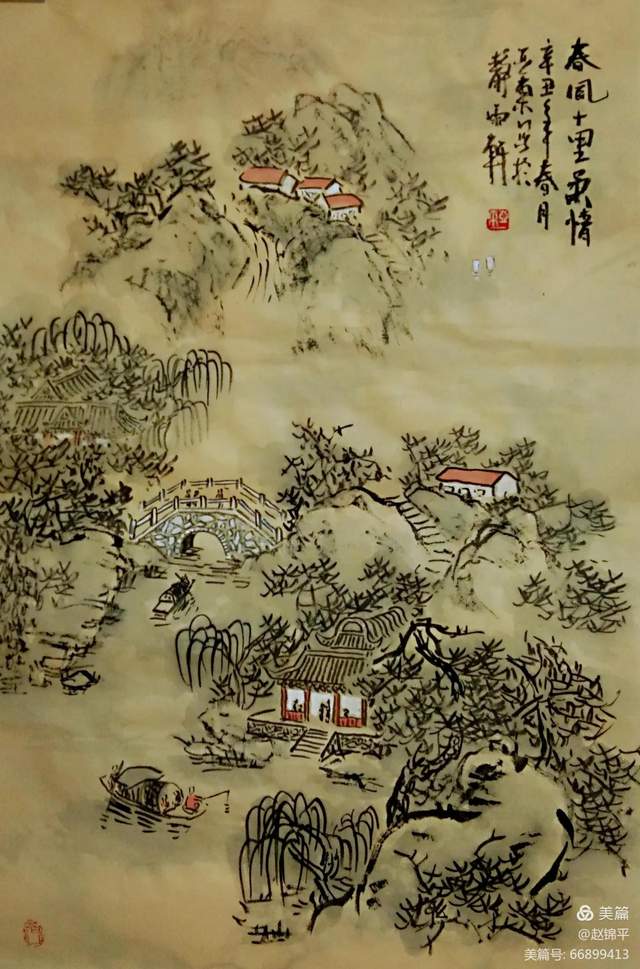 春风十里柔情
辛丑年春月
静雨轩
美篇
@赵锦平
美篇号: 66899413